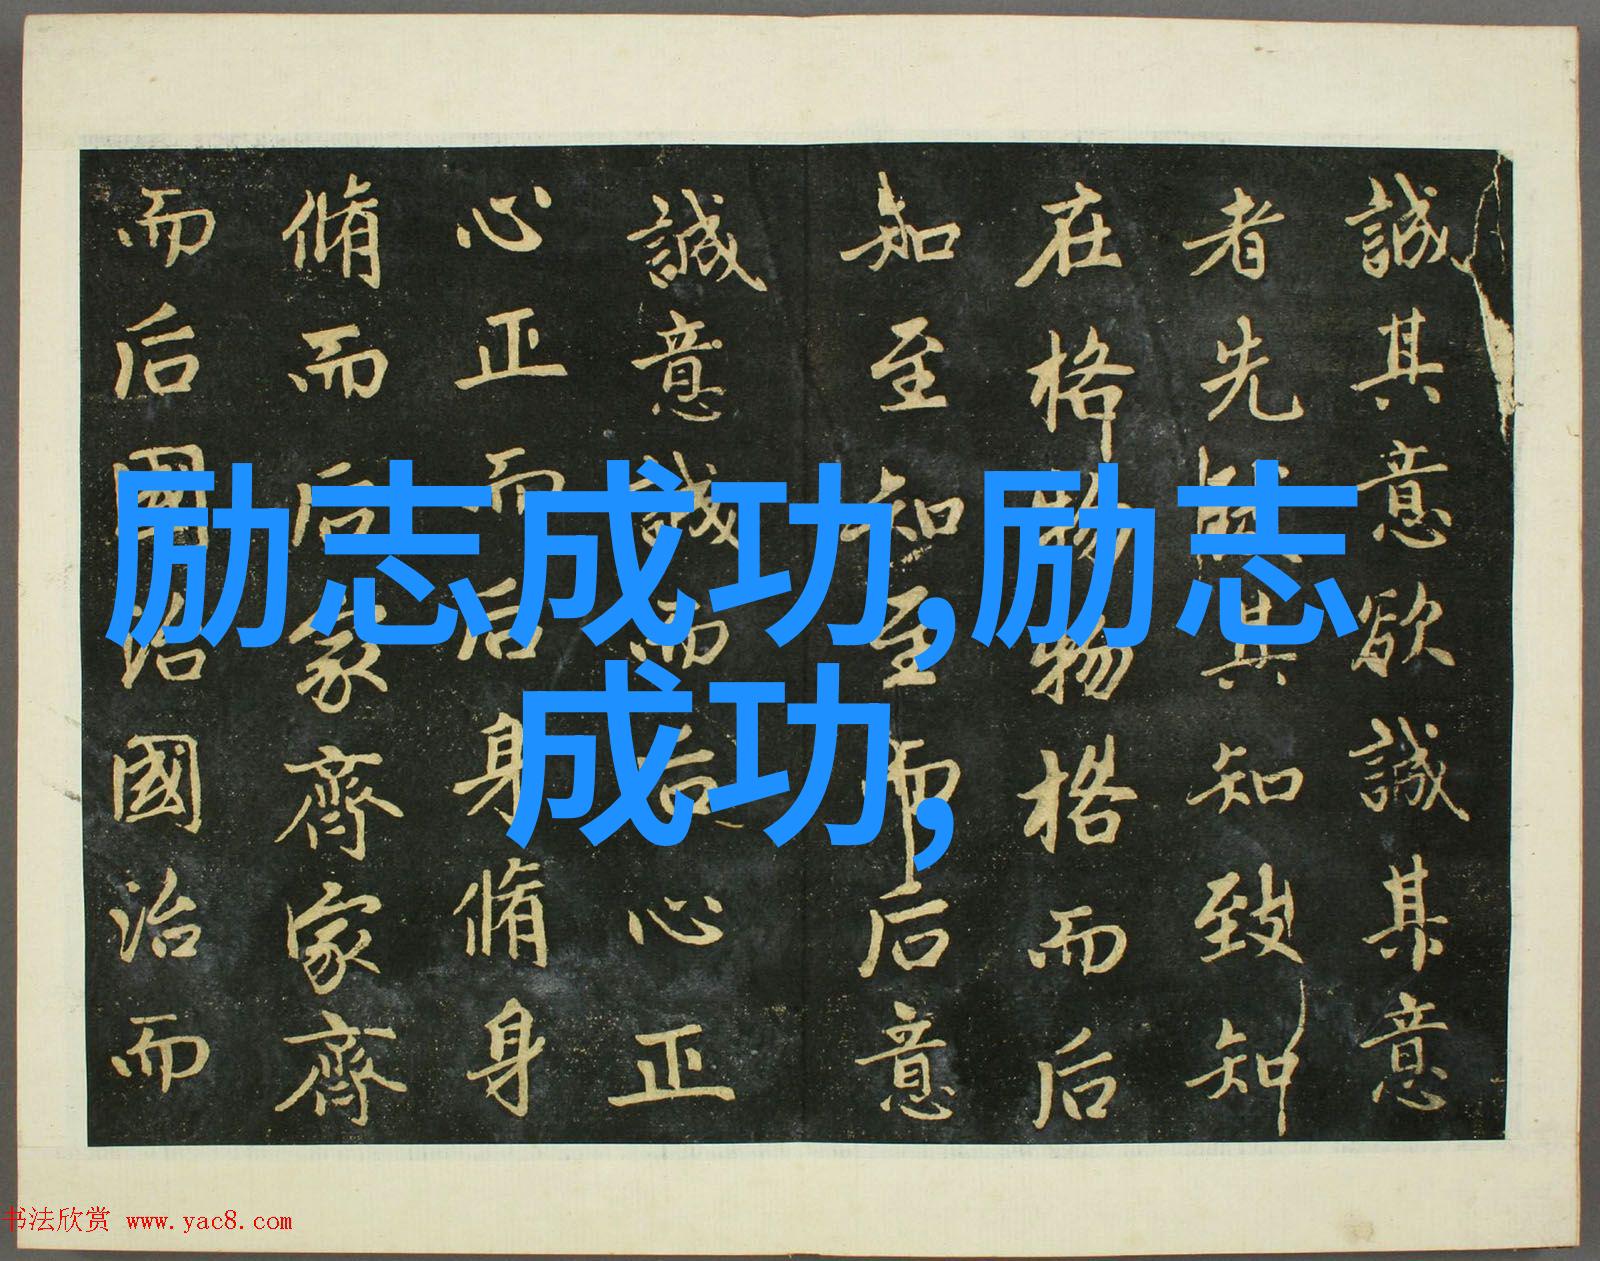 誠其意欲誠其意
者先致其知致知
在格物物格而后
知至知至而后意
誠意誠而后心正
心正而后身脩身
脩而后家齊家齊
而后國治國治而
励志成功,励志
成功,
书法欣赏 www.yac8.com